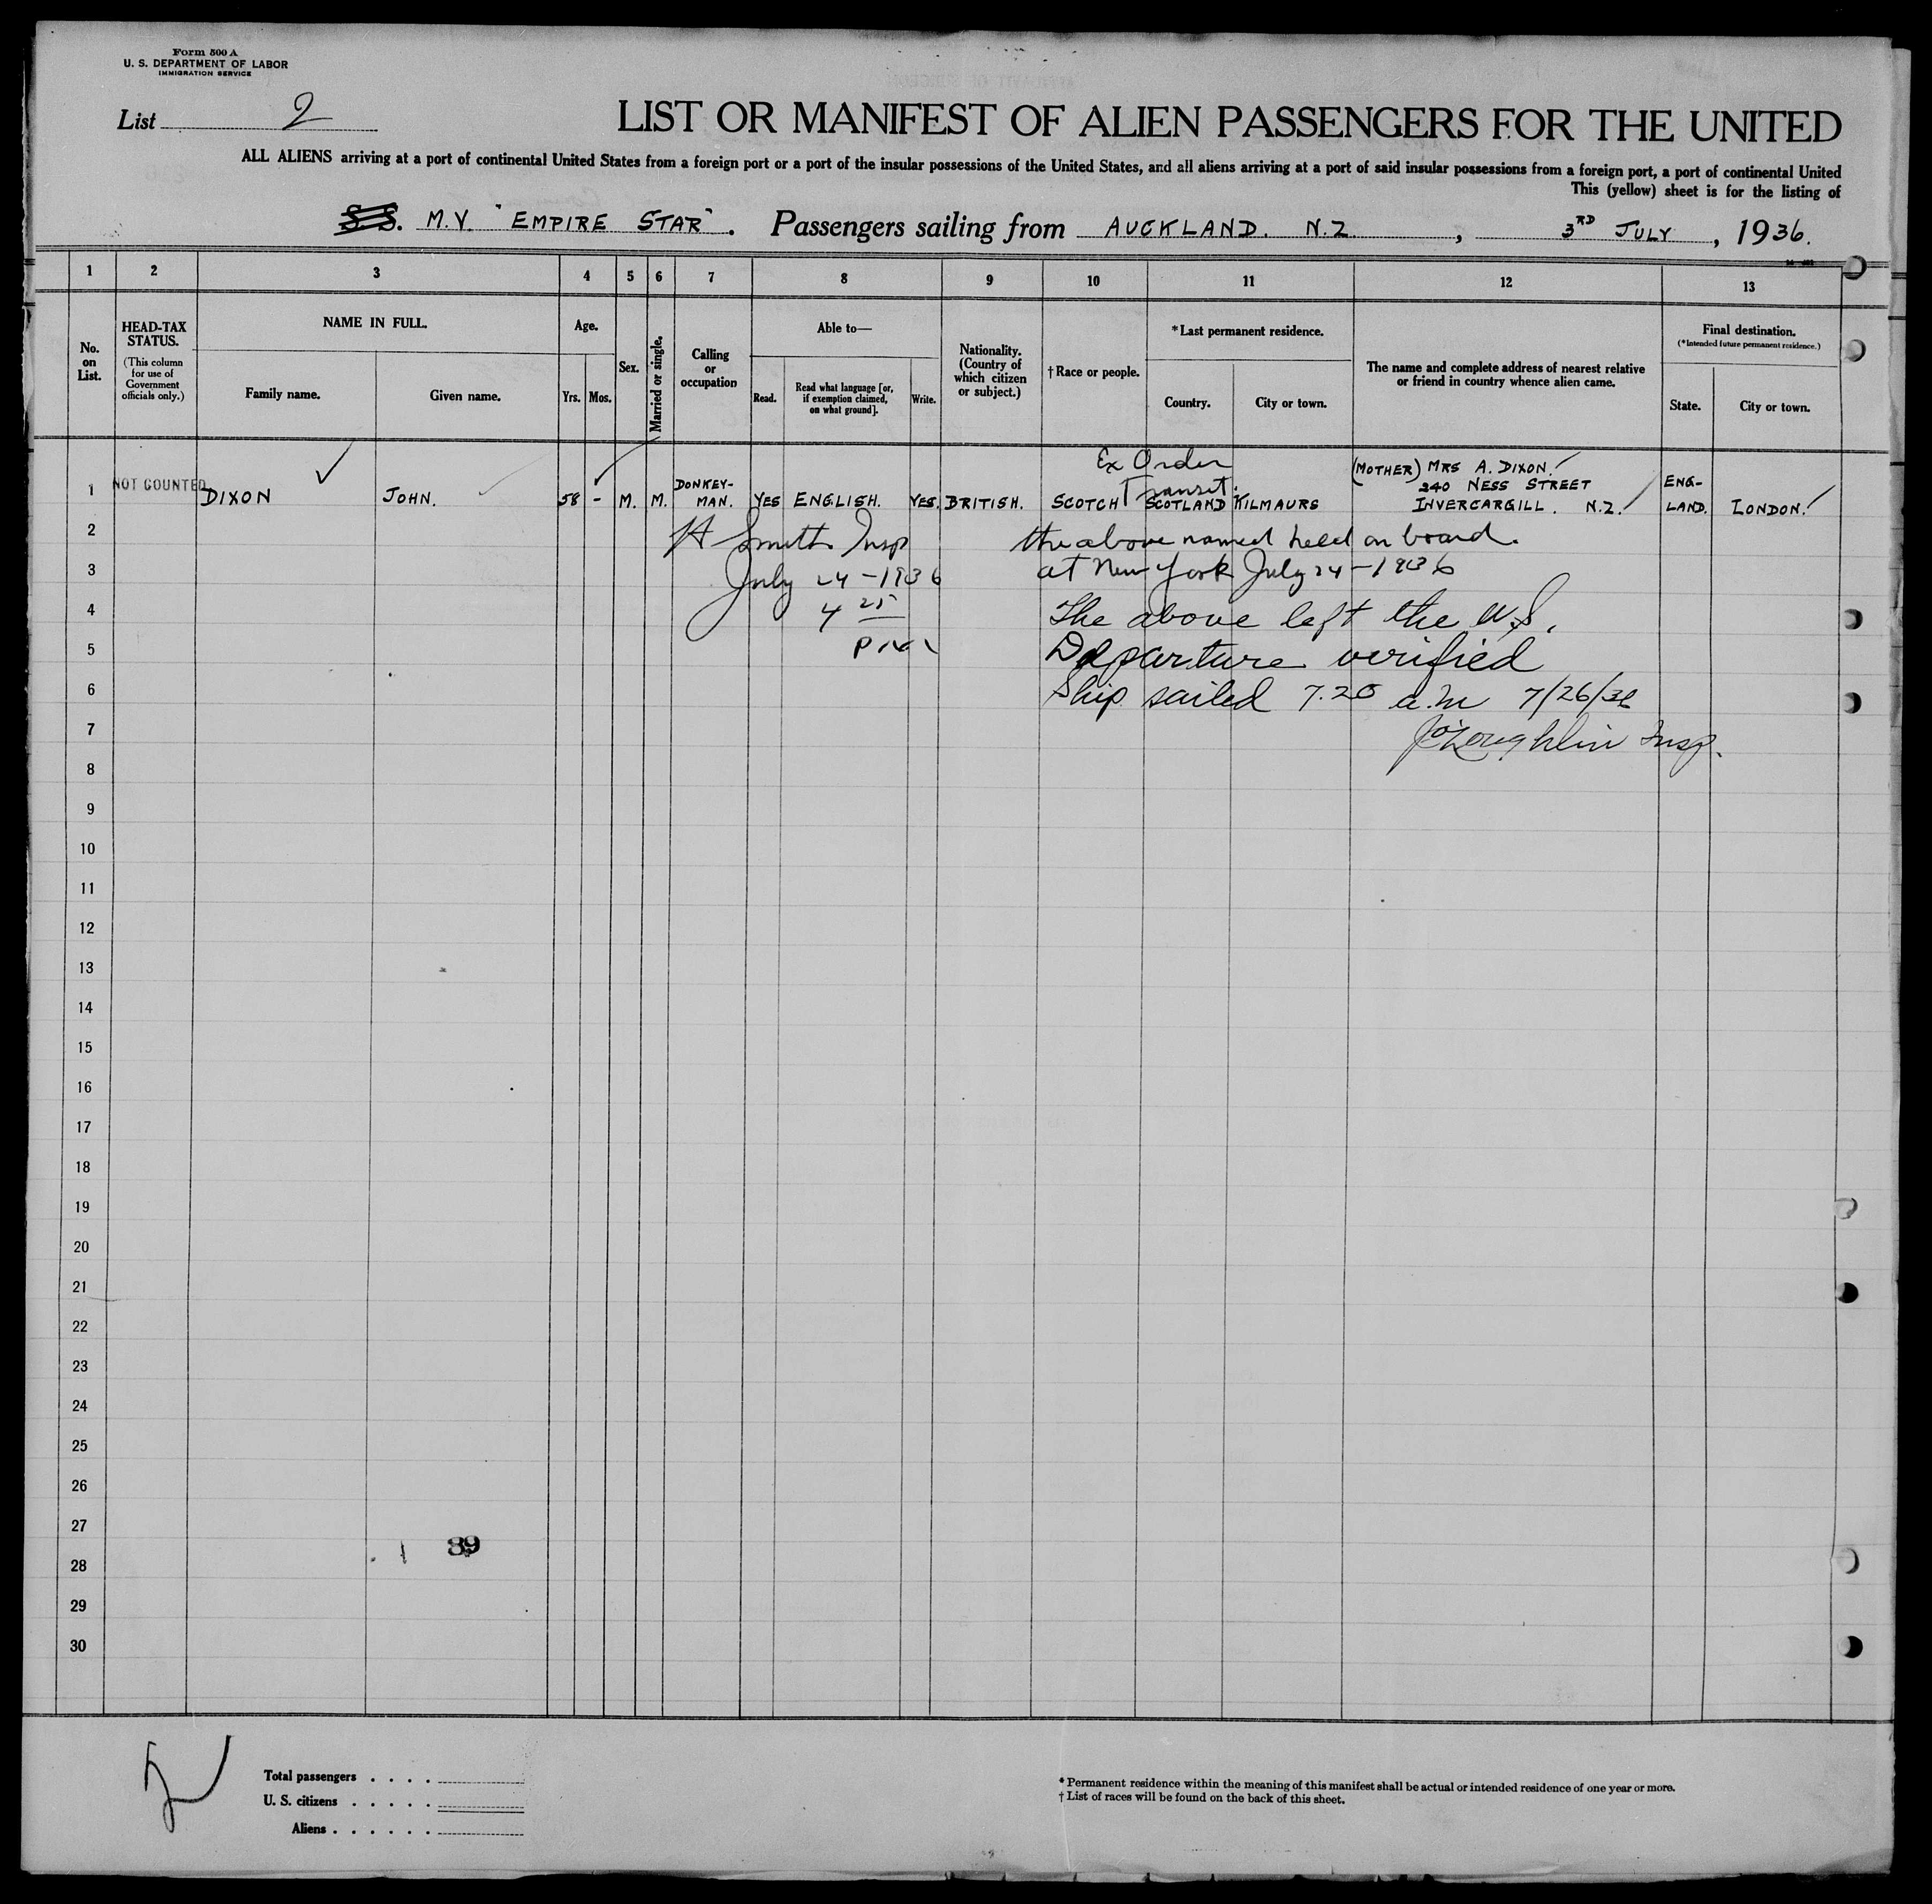 Form 500 A
U. S. DEPARTMENT OF LABOR
IMMIGRATION SERVICE
List 2
LIST OR MANIFEST OF ALIEN PASSENGERS FOR THE UNITED
ALL ALIENS arriving at a port of continental United States from a foreign port or a port of the insular possessions of the United States, and all aliens arriving at a port of said insular possessions from a foreign port, a port of continental United
This (yellow) sheet is for the listing of
S.S. M.V. "EMPIRE STAR". Passengers sailing from AUCKLAND. N.Z., 3RD JULY, 1936.
1 2 3 4 5 6 7 8 9 10 11 12 13
No. on List.
HEAD-TAX STATUS.
(This column for use of Government officials only.)
NAME IN FULL.
Family name.
Given name.
Age.
Yrs.
Mos.
Sex.
Married or single.
Calling or occupation
Able to—
Read.
Read what language [or, if exemption claimed, on what ground].
Write.
Nationality. (Country of which citizen or subject.)
†Race or people.
*Last permanent residence.
Country.
City or town.
The name and complete address of nearest relative or friend in country whence alien came.
Final destination.
(*Intended future permanent residence.)
State.
City or town.
Ex Order
Transit.
1 NOT COUNTED DIXON JOHN. 58 - M. M. DONKEY-MAN. YES ENGLISH. YES. BRITISH. SCOTCH SCOTLAND KILMAURS (MOTHER) MRS A. DIXON. 240 NESS STREET INVERCARGILL. N.Z. ENG-LAND. LONDON.
2 Smith Insp the above named held on board.
3 July 24-1936 at New York July 24-1936
4 4 25 The above left the U.S.
5 Departure verified
6 Ship sailed 7.20 a.m 7/26/36
7 J O'Loughlin Insp.
8
9
10
11
12
13
14
15
16
17
18
19
20
21
22
23
24
25
26
27
1 39
28
29
30
2
Total passengers . . . .
U. S. citizens . . . . .
Aliens . . . . . .
* Permanent residence within the meaning of this manifest shall be actual or intended residence of one year or more.
† List of races will be found on the back of this sheet.